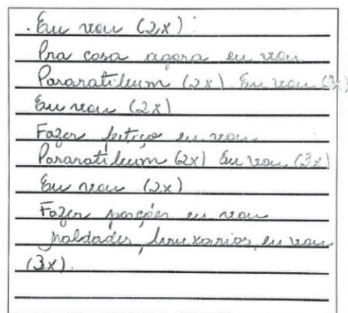 . Eu vou (2x)
Pra casa agora eu vou
Pararatibum (2x) Eu vou (3x)
Eu vou (2x)
Fazer feitiço eu vou
Pararatibum (2x) Eu vou (3x)
Eu vou (2x)
Fazer porções eu vou
maldades, bruxarias, eu vou
(3x).